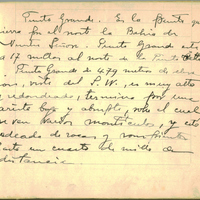 Punta Grande. Es la punta que
cierra por el norte la Bahía de
Nuestra Señora. Punta Grande está
a 17 millas al norte de la Punta
Punta Grande de 479 metros de eleva
ción, vista del S.W., es muy alta
y redondeada, termina por una
parte baja y abrupta, sobre el cual
se ven varios montículos, y está
rodeada de rocas y rompientes
hasta un cuarto de milla de
distancia.